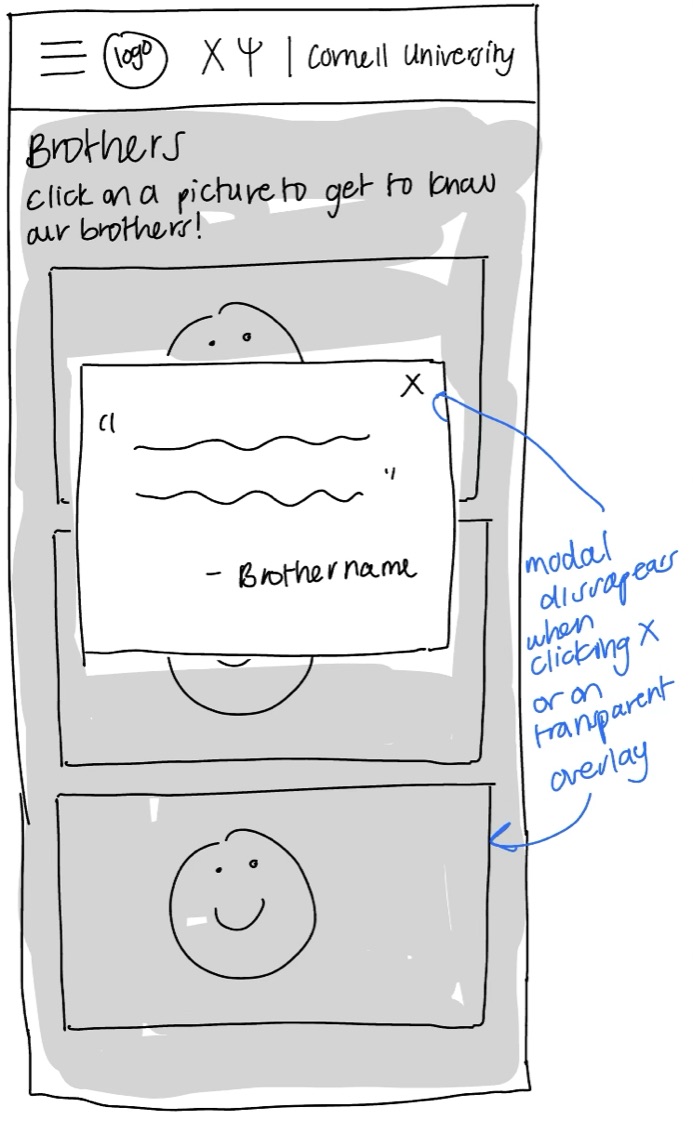 logo
X Ψ | Cornell University
Brothers
click on a picture to get to know
our brothers!
X
"
"
- Brother name
modal
disrapears
when
clicking X
or on
transparent
overlay